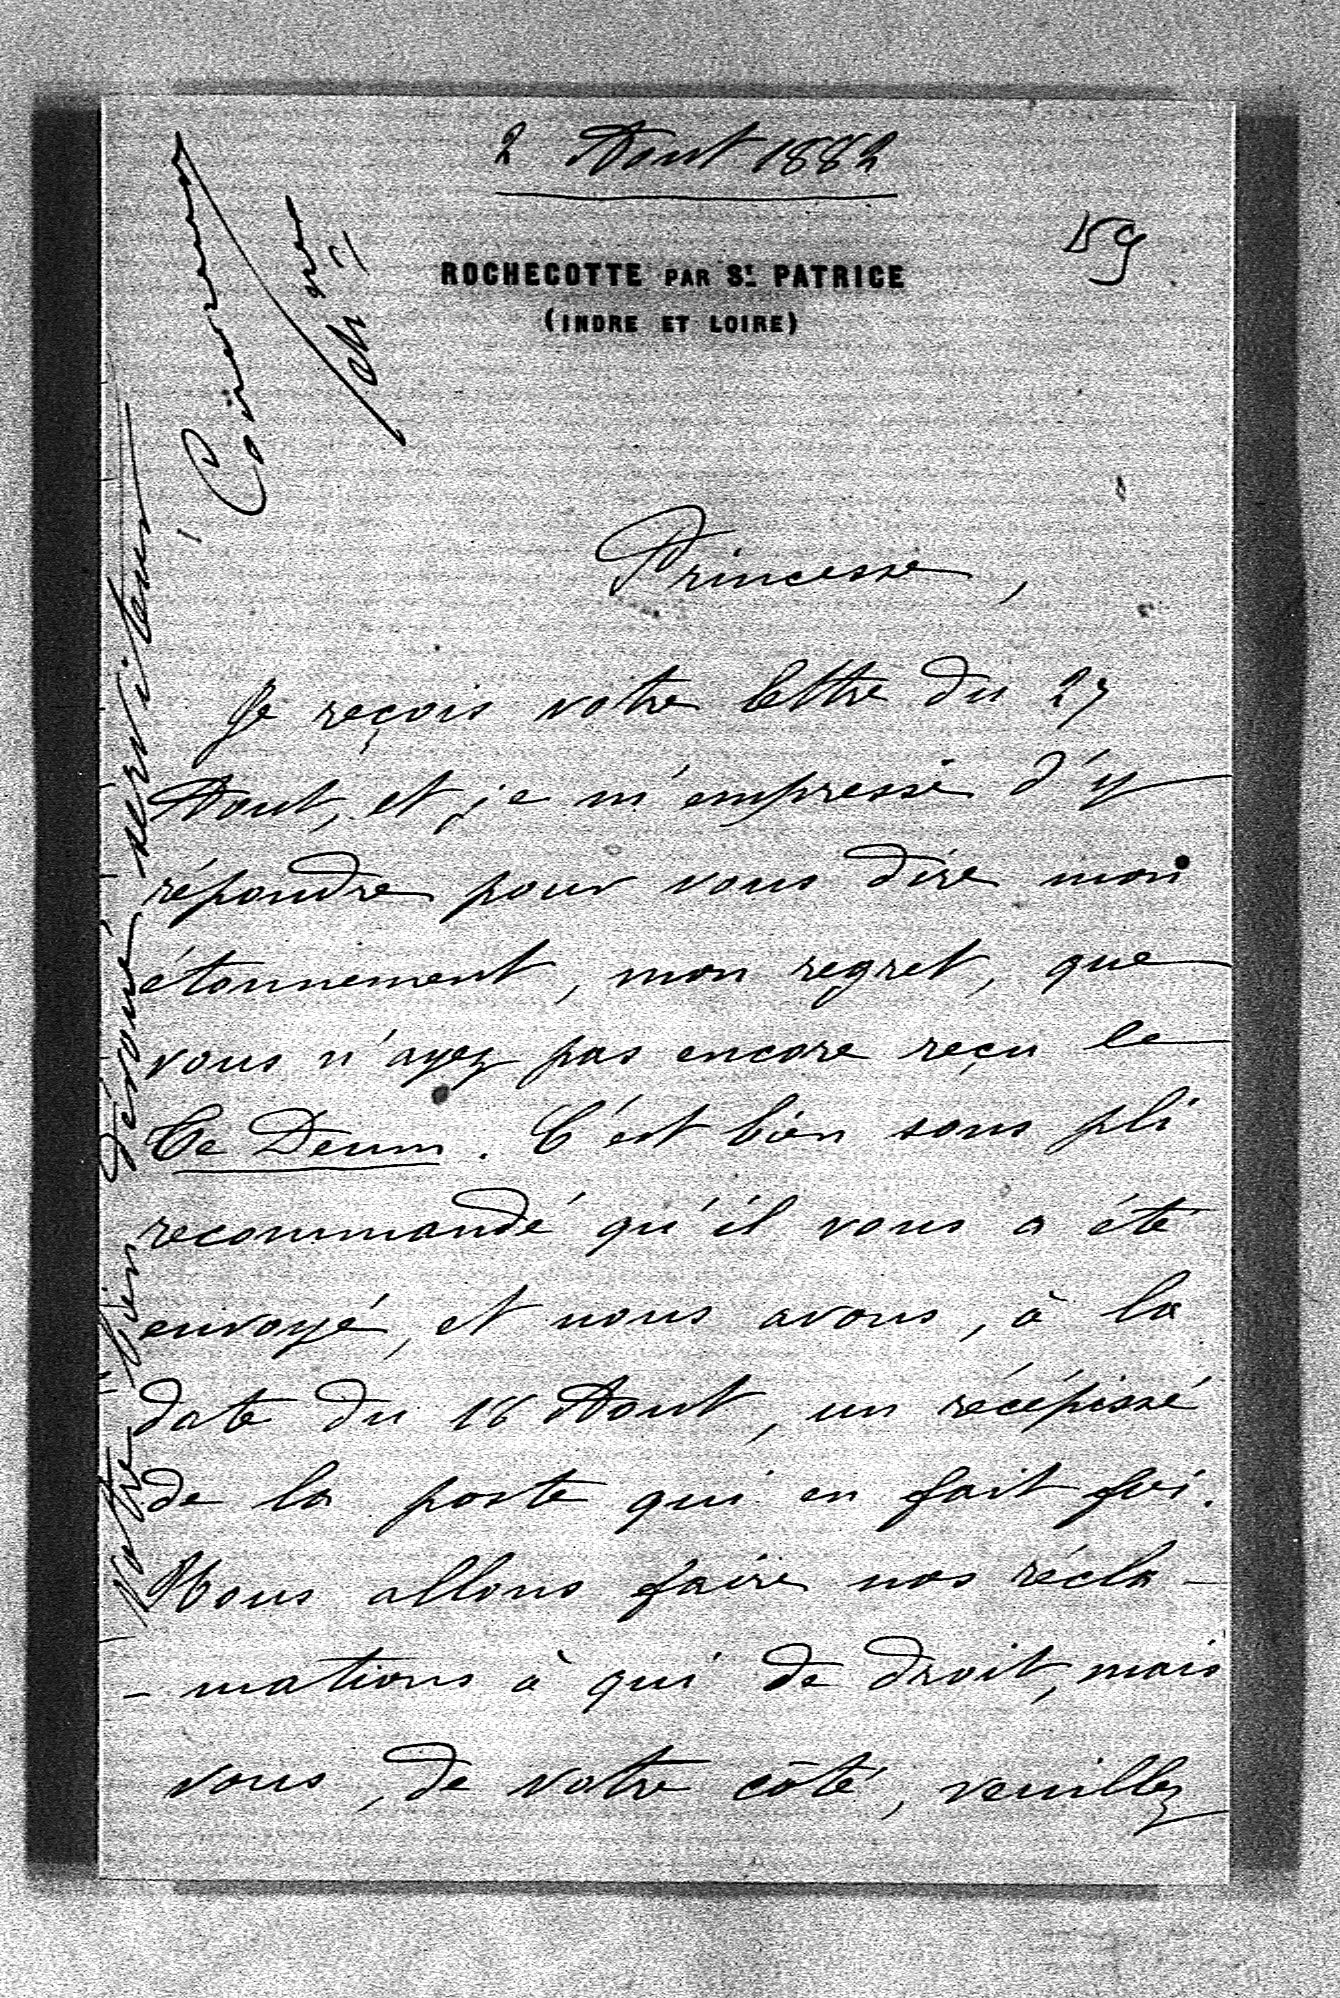 2 Aout 1882
59
ROCHECOTTE PAR St. PATRICE
(INDRE ET LOIRE)
Princesse,
Je reçois votre lettre du 27
Aout, et je m'empresse d'y
répondre pour vous dire mon
étonnement, mon regret, que
vous n'ayez pas encore reçu le
Te Deum. C'est bien sous pli
recommandé qu'il vous a été
envoyé, et nous avons, à la
date du 18 Aout, un récépissé
de la poste qui en fait foi.
Nous allons faire nos récla-
-mations à qui de droit, mais
vous, de votre côté, veuillez
Votre bien dévoué serviteur